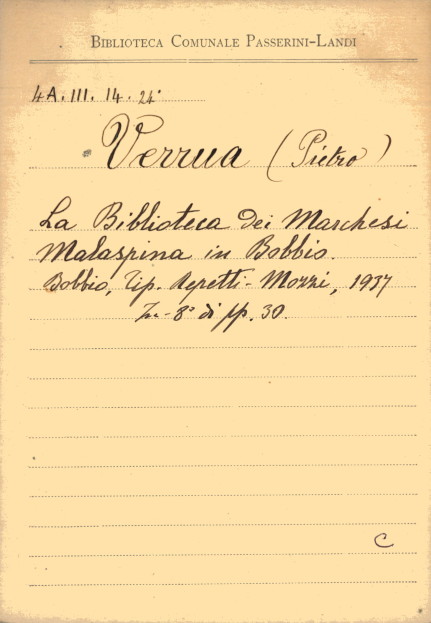 BIBLIOTECA COMUNALE PASSERINI-LANDI
4A. III. 14. 24°
Verrua (Pietro)
La Biblioteca dei Marchesi
Malaspina in Bobbio.
Bobbio, Tip. Repetti-Mozzi, 1937
In-8° di pp. 30.
C